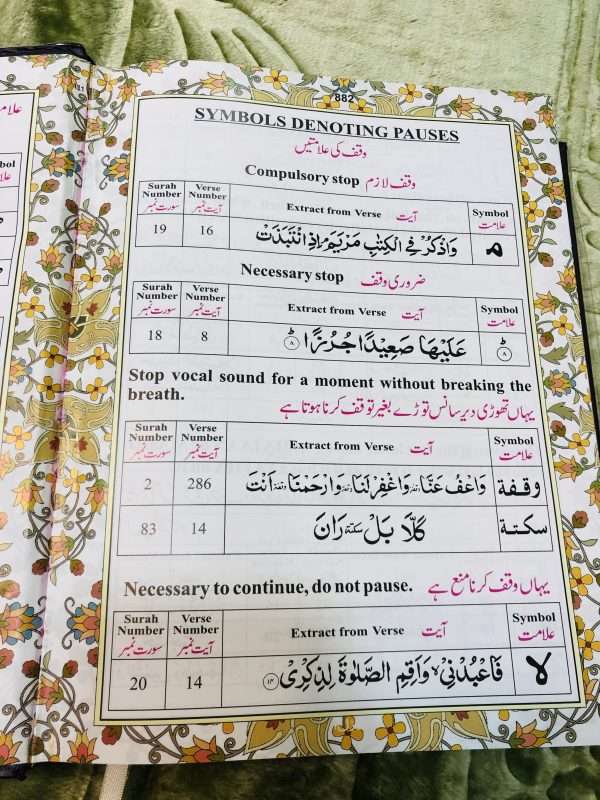 882
SYMBOLS DENOTING PAUSES
وقف کی علامتیں
Compulsory stop وقف لازم
Surah Number سورت نمبر Verse Number آیت نمبر Extract from Verse آیت Symbol علامت
19 16 وَاذْكُرْ فِي الْكِتٰبِ مَرْيَمَ ۘ اِذِ انْتَبَذَتْ مـ
Necessary stop ضروری وقف
Surah Number سورت نمبر Verse Number آیت نمبر Extract from Verse آیت Symbol علامت
18 8 عَلَيْهَا صَعِيْدًا جُرُزًا ۸ ط ۸
Stop vocal sound for a moment without breaking the
breath.
یہاں تھوڑی دیر سانس توڑے بغیر توقف کرنا ہوتا ہے
Surah Number سورت نمبر Verse Number آیت نمبر Extract from Verse آیت Symbol علامت
2 286 وَاعْفُ عَنَّا وقفة وَاغْفِرْ لَنَا وقفة وَارْحَمْنَا وقفة اَنْتَ وقفة
83 14 كَلَّا بَلْ سكتة رَانَ سكتة
Necessary to continue, do not pause. یہاں وقف کرنا منع ہے
Surah Number سورت نمبر Verse Number آیت نمبر Extract from Verse آیت Symbol علامت
20 14 فَاعْبُدْنِيْ ۙ وَاَقِمِ الصَّلٰوةَ لِذِكْرِيْ ۱۴ لا